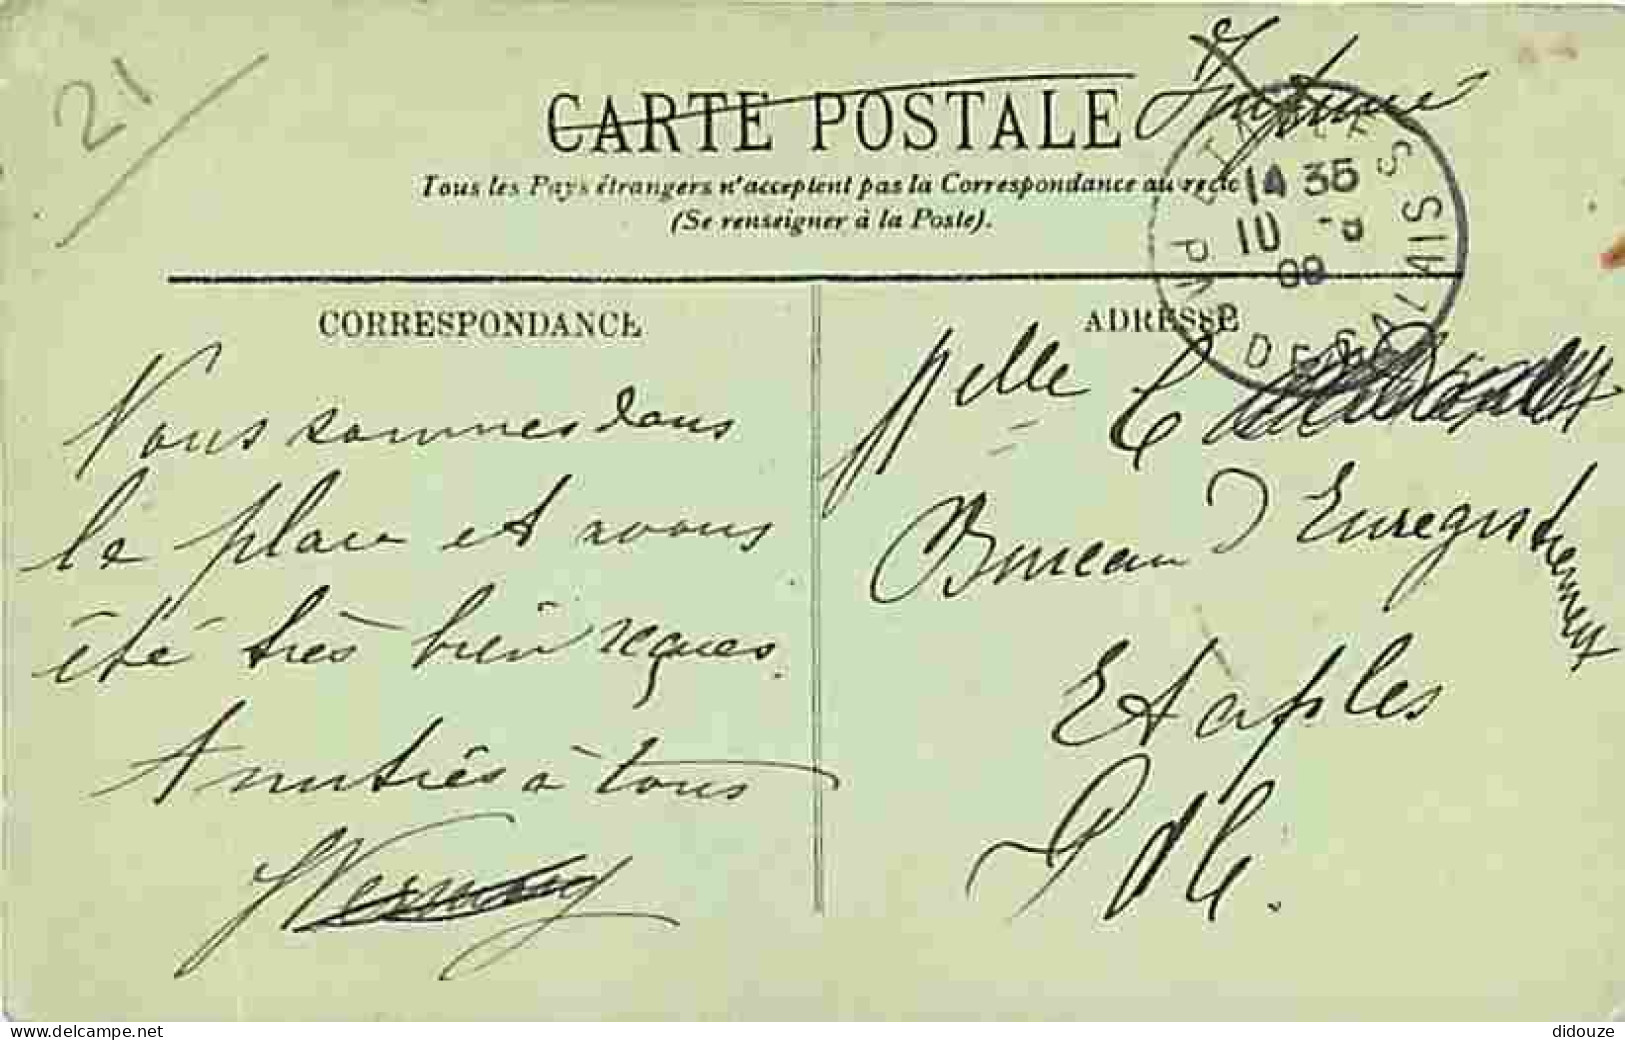 21
Imprimé
CARTE POSTALE
Tous les Pays étrangers n'acceptent pas la Correspondance au recto
(Se renseigner à la Poste).
ETAPLES
14 35
10 -8
09
PAS DE CALAIS
CORRESPONDANCE
ADRESSE
Nous sommes dans
la place et avons
été très bien reçues.
Amitiés à tous
Melle C
Bureau d'Enregistrement
Etaples
PdC.
www.delcampe.net
didouze